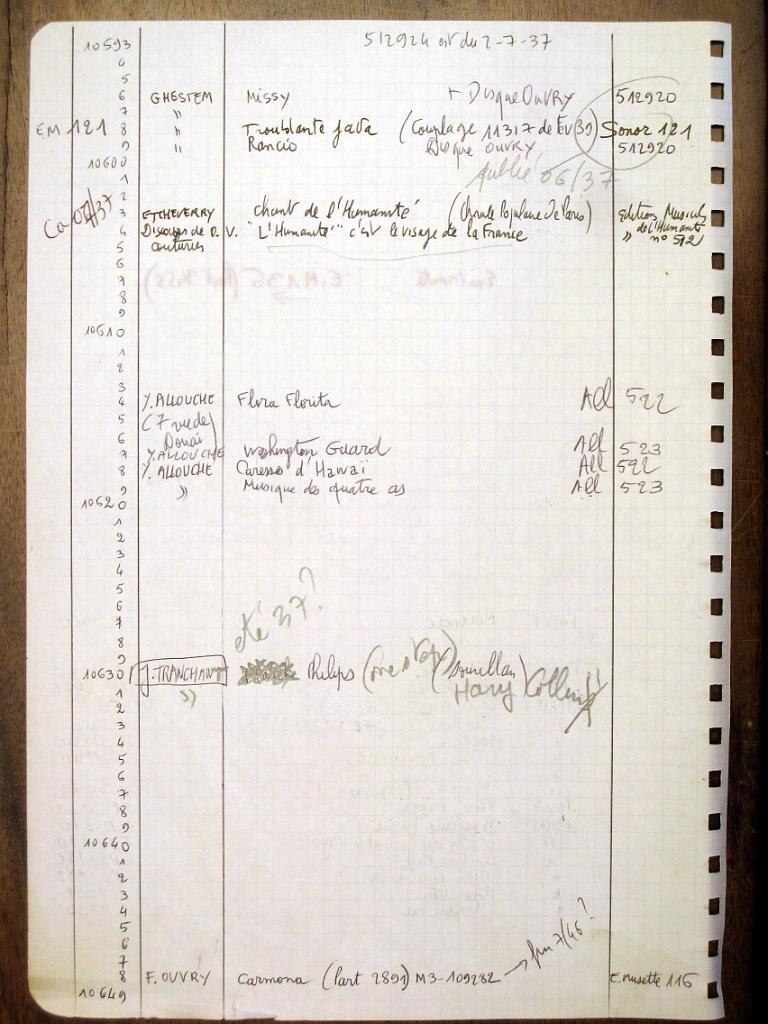 512924 est du 2-7-37
10593
4
5
6 GHESTEM Missy + Disque OUVRY 512920
7 "
EM 121 8 " Troublante Java (Couplage 11317 de EV 39) Sonor 121
9 " Rancio Disque OUVRY 512920
10600
1 Publié 06/37
2
Ca 07/37 3 ETCHEVERRY Chant de l'Humanité (Chorale Populaire de Paris) Editions Musicales
4 Discours de P. V. "L'Humanité" c'est le visage de la France de l'Humanité
5 Couturier " n° 512
6
7
8
9
10610
1
2
3
4 Y. ALLOUCHE Flora Florita All 522
5 (7 rue de
6 Douai)
7 Y. ALLOUCHE Washington Guard All 523
8 Y. ALLOUCHE Caresses d'Hawaï All 522
9 " Musique des quatre as All 523
10620
1
2
3
4
5
6
7 été 37?
8
9
10630 J. TRANCHANT Philips
1 " Harry
2
3
4
5
6
7
8
9
10640
1
2
3
4
5
6
7
8 F. OUVRY Carmona (Part 2891) M3-109282 → 7/46? Emusette 116
10649